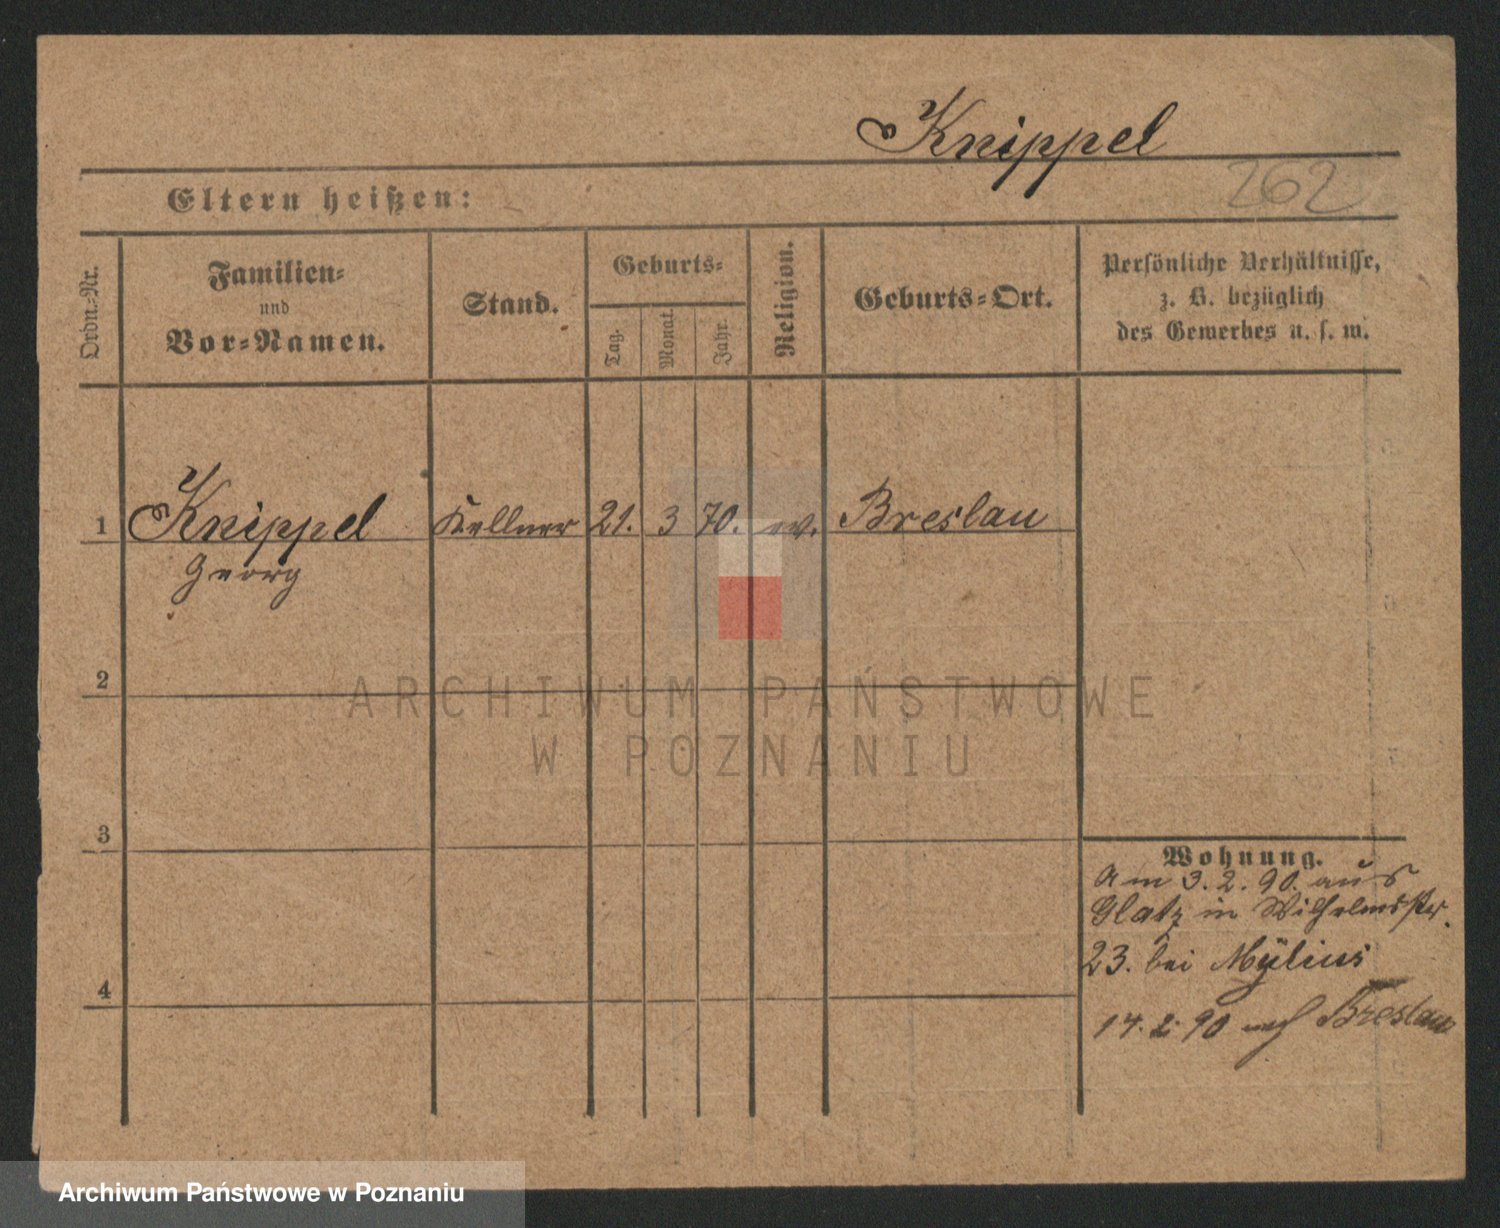 Knippel
262
Eltern heißen:
Ordn.-Nr.
Familien-
und
Vor-Namen.
Stand.
Geburts-
Tag.
Monat.
Jahr.
Religion.
Geburts-Ort.
Persönliche Verhältnisse,
z. B. bezüglich
des Gewerbes u. s. w.
1 Knippel Kellner 21. 3 70. ev. Breslau
Georg
2
ARCHIWUM PAŃSTWOWE
W POZNANIU
3
Wohnung.
Am 3. 2. 90. aus
Glatz in Wilhelmsstr.
23. bei Mÿlius
4
14. 2. 90 nach Breslau
Archiwum Państwowe w Poznaniu